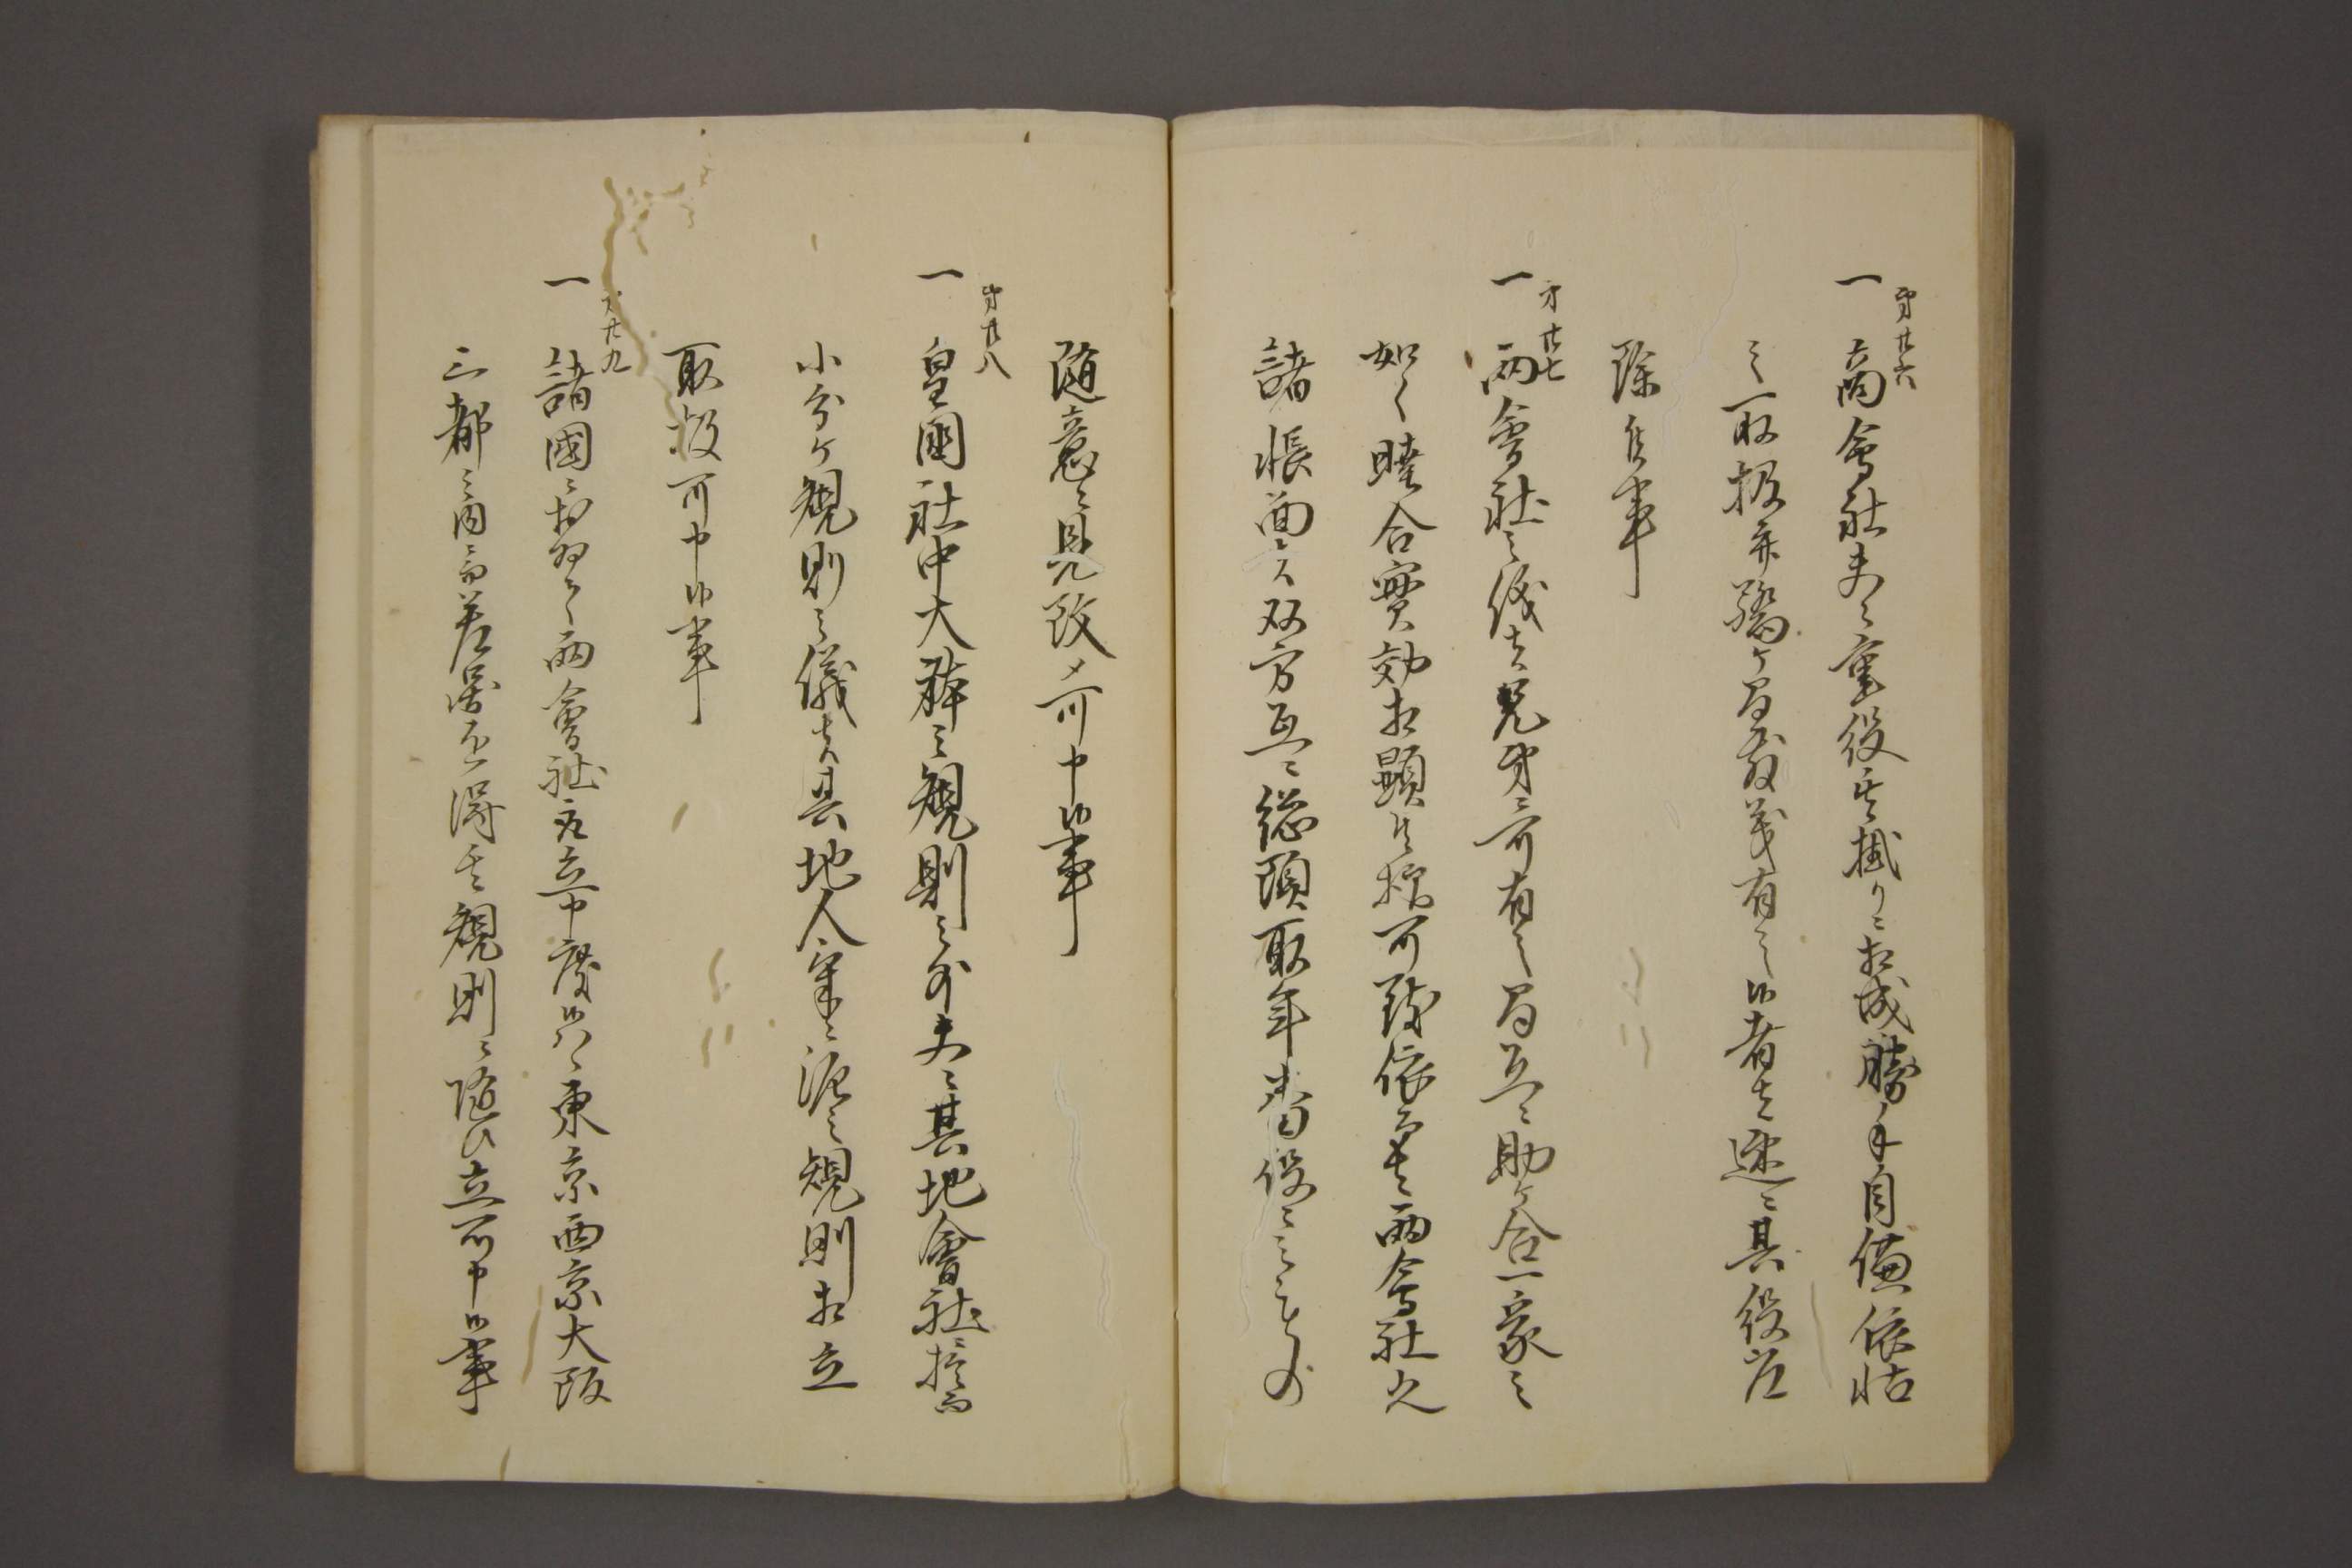 第廿六
一 商會社夫々重役之掛リニ相成勝手自儘依怙
之取扱并驕ヶ間敷義有之候者ハ速ニ其役筋
除候事
第廿七
一 両會社之儀者兄弟ニ可有之間互ニ助ヶ合一家之
如く睦合實効相顕候様可致依而者両會社先
諸帳面者双方互ニ総頭取年番役ニ
随意ニ見改メ可申候事
第廿八
一 皇国社中大祥之規則之外夫々其地會社ニ於而
小分ヶ規則之儀者其地人家ニ泥之規則相立
取扱可申候事
第廿九
一 諸國ニおゐて両會社取立申度候ハヽ東京西京大阪
三都之内ニ而差図を得其規則ニ随ひ立可申候事